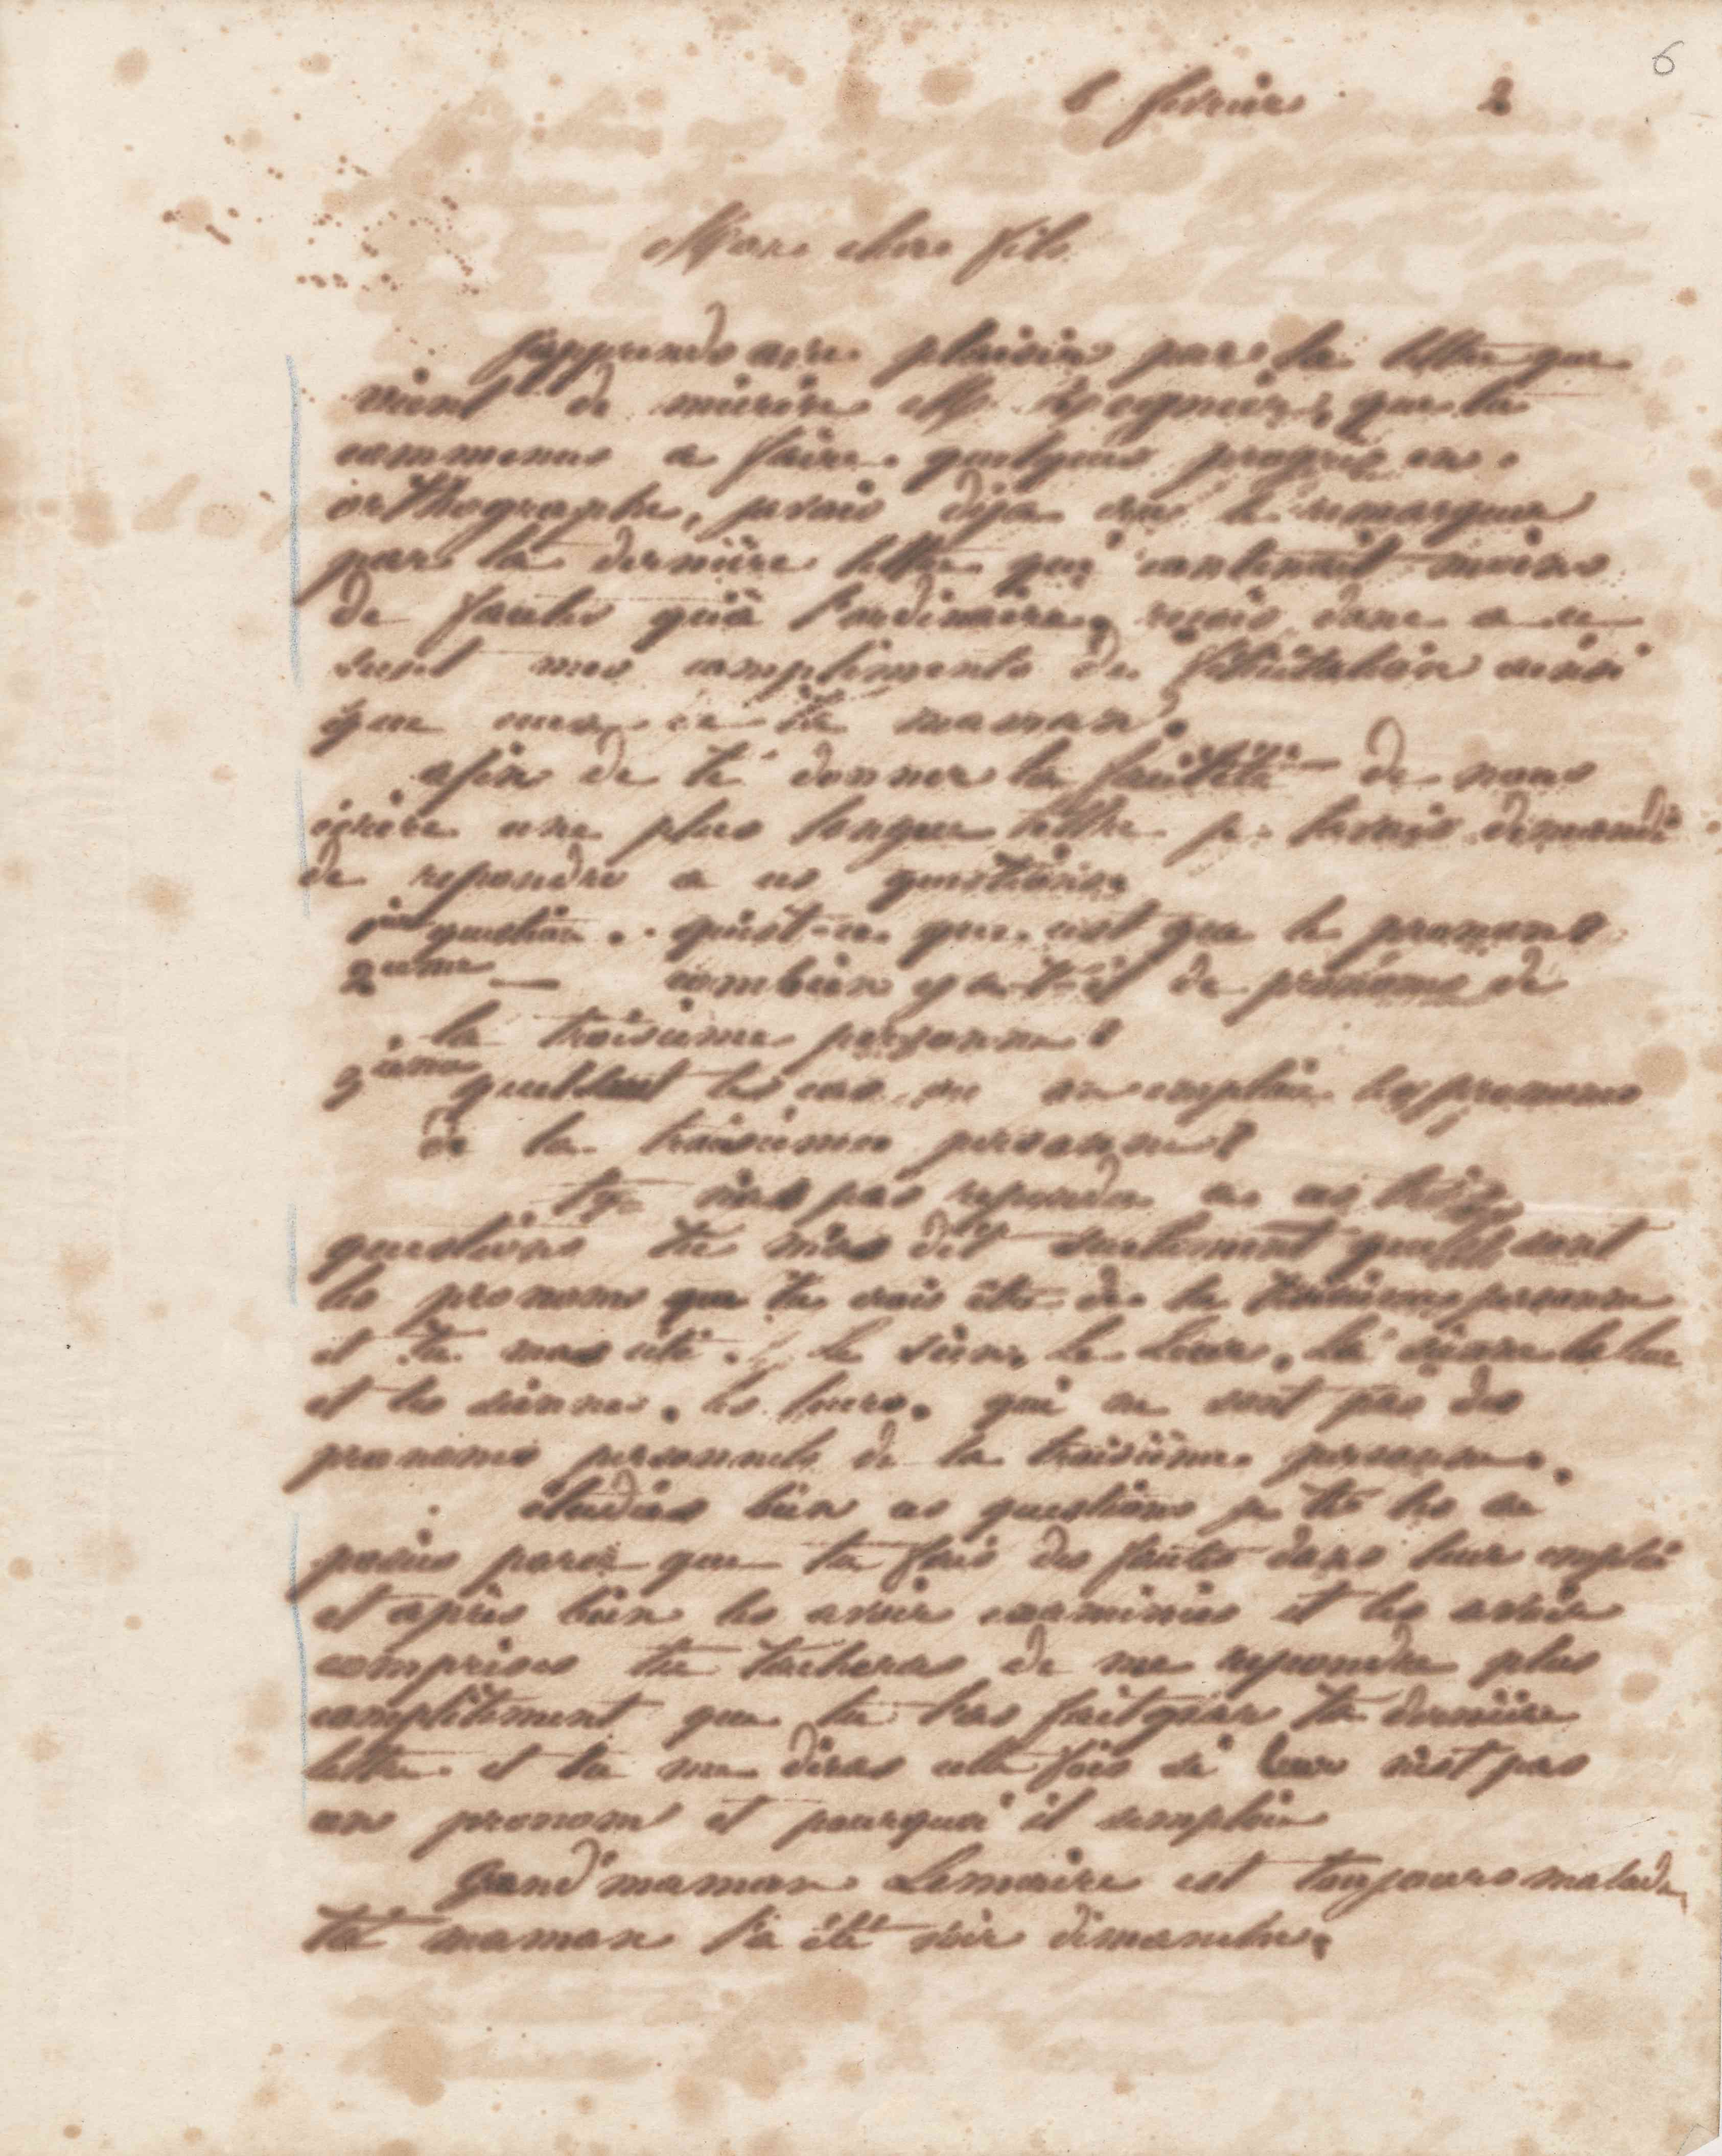 6
6 février 2
Mon cher fils
J'apprends avec plaisir par la lettre que
vient de m'ecrire M. que tu
commence a faire quelques progres en
orthographe, javais deja cru le remarquer
par ta dernière lettre qui contenait moins
de fautes qu'à l'ordinaire, recois donc a ce
sujet mes complimento de félicitation ainsi
que ceux de ta maman.
afin de te donner la facilité de nous
écrire une plus longue lettre je tavais demandé
de repondre a ces questions.
1ere question. qu'est-ce que cest que le pronom?
2eme — combien y a-t-il de pronoms de
la troisieme personne?
3eme quel est le cas ou on emploie les pronoms
de la troisieme personne?
tu n'as pas repondu a ces trois
questions tu m'as dit seulement quels sont
les pronoms que tu crois être de la troisieme personne
et tu mas cité le sien, le leur, la sienne la leur
et les siennes, les leurs, qui ne sont pas des
pronoms personnels de la troisième personne.
étudies bien ces questions je te les ai
posées parce que tu fais des fautes dans leur emploi
et après bien les avoir examinées et les avoir
comprises tu tacheras de me repondre plus
complètement que tu l'as fait par ta dernière
lettre et tu me diras cette fois si leur n'est pas
un pronom et pourquoi il semploie
grand'maman Lemaire est toujours malade,
ta maman l'a été voir dimanche.